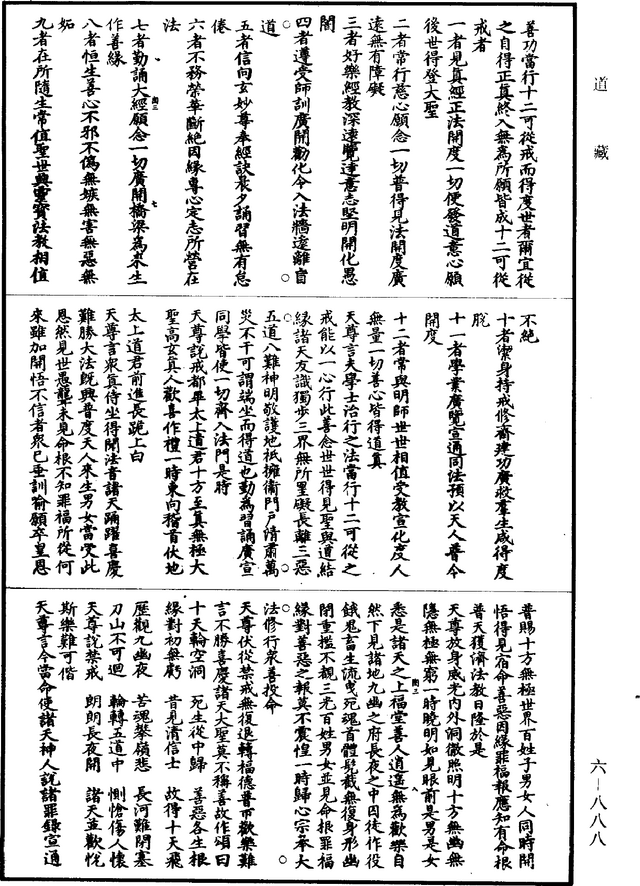 道藏
善功當行十二可從戒而得度世者爾宜從
之自得正真終入無為所願皆成十二可從
戒者
一者見真經正法開度一切便發道意心願
後世得登大聖
二者常行慈心願念一切普得見法開度廣
遠無有障礙
三者好樂經教深遠覽達意志堅明開化愚
闇
四者遵受師訓廣開勸化令入法牆遠離盲
道
五者信向玄妙尊奉經訣晨夕誦習無有怠
倦
六者不務榮華斷絕因緣專心定志所營在
法
七者勤誦大經願念一切廣開橋梁為來生
作善緣
八者恒生善心不邪不偽無嫉無害無惡無
妬
九者在所隨生常值聖世與靈寶法教相值
不絕
十者潔身持戒修齋建功廣救羣生咸得度
脫
十一者學業廣覽宣通同法預以天人普令
開度
十二者常與明師世世相值受教宣化度人
無量一切善心皆得道真
天尊言夫學士治行之法當行十二可從之
戒能以一心行此善念世世得見聖與道結
緣諸天友識獨步三界無所罣礙長離三惡
五道八難神明敬護地祇擁衛門戶清肅萬
災不干可謂端坐而得道也勤為習誦廣宣
同學皆使一切齊入法門是時
天尊說戒都畢太上道君十方至真無極大
聖高玄真人歡喜作禮一時東向稽首伏地
太上道君前進長跪上白
天尊言眾真侍坐得聞法音諸天踊躍喜慶
難勝大法既興普度天人來生男女當受此
恩然見世愚聾未見命根不知罪福所從何
來雖加開悟不信者眾已垂訓喻願卒皇恩
普賜十方無極世界百姓子男女人同時開
悟得見宿命善惡因緣罪福報應知有命根
普天獲濟法教日隆於是
天尊放身威光內外洞徹照明十方無幽無
隱無極無窮一時曉明如見眼前是男是女
悉是諸天之上福堂善人逍遙無為歡樂自
然下見諸地九幽之府長夜之中囚徒作役
餓鬼畜生流曳死魂首體髡截無復身形幽
閉重檻不覩三光百姓男女並見命根罪福
緣對善惡之報莫不震惶一時歸心宗奉大
法修行眾善投命
天尊伏從禁戒無復退轉福德普帀歡樂難
言不勝喜慶諸天大聖莫不稱善故作頌曰
十天輪空洞　死生從中歸　善惡各生根
緣對初無虧　昔見清信士　故得十天飛
歷觀九幽夜　苦魂攀嶺悲　長河難閉塞
刀山不可迴　輪轉五道中　惻愴傷人懷
天尊說禁戒　朗朗長夜開　諸天並歡悅
斯樂難可偕
天尊言今當命使諸天神人說諸罪錄宣通
六—八八八